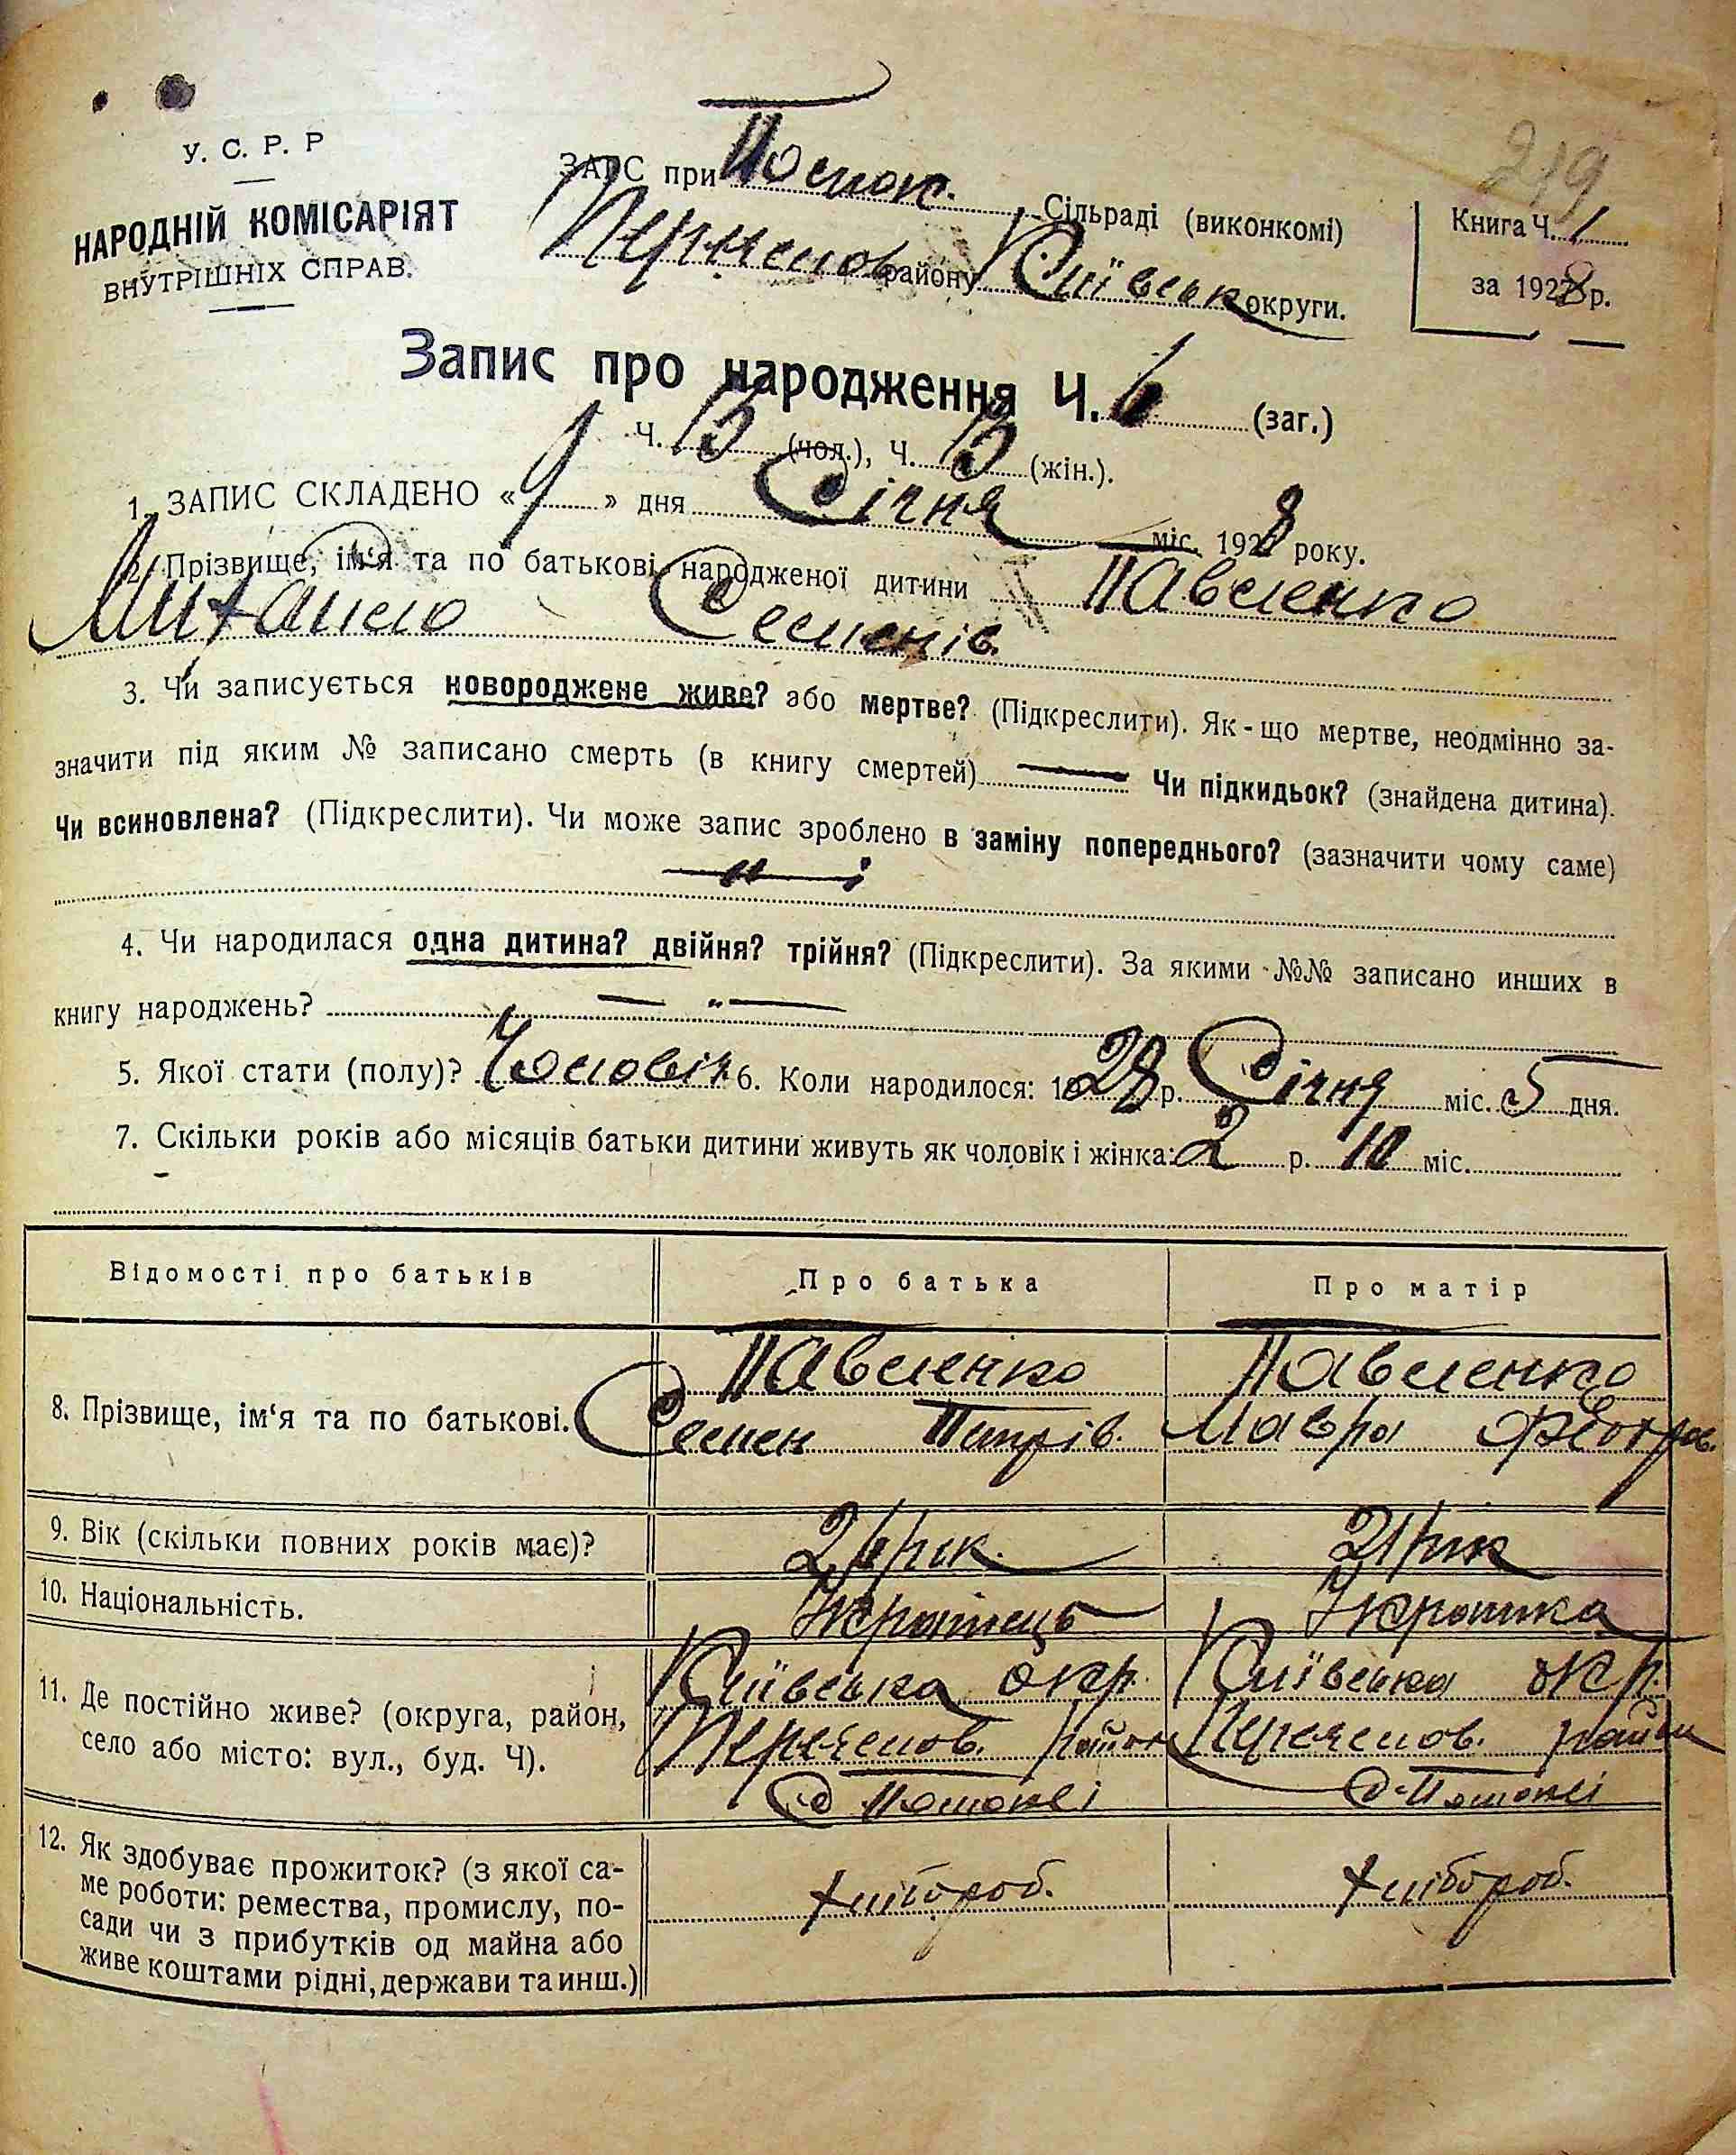 219
У. С. Р. Р
НАРОДНІЙ КОМІСАРІЯТ
ВНУТРІШНІХ СПРАВ.
ЗАГС при Поток. Сільраді (виконкомі)
району Київськ округи.
Книга Ч. 1
за 1928 р.
Запис про народження Ч. 6 (заг.)
Ч. 3 (чол.), Ч. 3 (жін.).
1. ЗАПИС СКЛАДЕНО « 9 » дня Січня міс. 1928 року.
2. Прізвище, ім'я та по батькові народженої дитини Павленко
Михайло Семенів.
3. Чи записується новороджене живе? або мертве? (Підкреслити). Як-що мертве, неодмінно за-
значити під яким № записано смерть (в книгу смертей) — Чи підкидьок? (знайдена дитина).
Чи всиновлена? (Підкреслити). Чи може запис зроблено в заміну попереднього? (зазначити чому саме)
— " —
4. Чи народилася одна дитина? двійня? трійня? (Підкреслити). За якими №№ записано инших в
книгу народжень? — " —
5. Якої стати (полу)? Чоловік 6. Коли народилося: 1928 р. Січня міс. 5 дня.
7. Скільки років або місяців батьки дитини живуть як чоловік і жінка: 2 р. 10 міс.
Відомості про батьків Про батька Про матір
8. Прізвище, ім'я та по батькові. Павленко Павленко
Семен Петрів. Мавра Федоров.
9. Вік (скільки повних років має)? 26 рік. 21 рік
10. Національність. Українець Українка
11. Де постійно живе? (округа, район, Київська окр. Київська окр.
село або місто: вул., буд. Ч). район район
с Потоки с Потоки
12. Як здобуває прожиток? (з якої са-
ме роботи: ремества, промислу, по- хлібороб. хлібороб.
сади чи з прибутків од майна або
живе коштами рідні, держави та инш.)